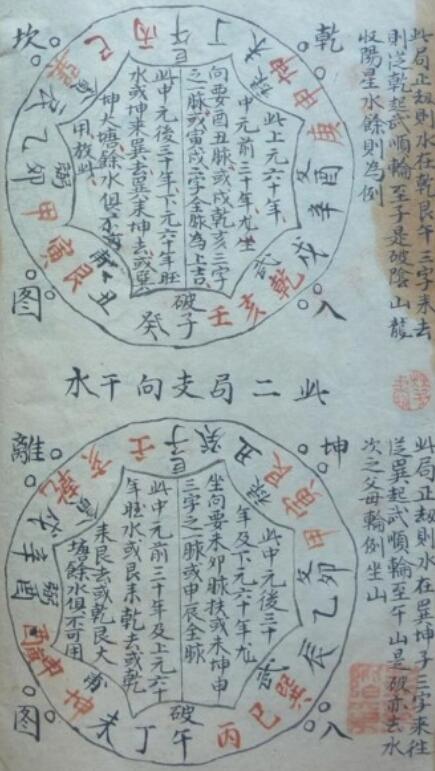 此局正刼則水在乾艮午三字来去
則從乾起武順輪至子是破陰山龍
収陽星水餘則為例
乾
坎
八
图
丁
午
丙
巳
辰
乙
卯
甲
寅
艮
丑
癸
破子
壬
亥
乾
戌
武
辛
酉
庚
申
坤
未
祿
此上元六十年
中元前三十年尤坐
向要酉丑脉或戌乾亥三字
之一脉或寅戌二字全脉為上吉
此中元後三十年下元六十年旺
水或坤来巽去巽来坤去或巽
坤大塘餘水俱不可
用放此
此二局支向干水
此局正刼則水在巽坤子三字来往
從巽起武順輪至午山是破亦去水
次之父母輪例坐山
坤
離
八
图
壬
子
癸
丑
祿
艮
寅
甲
卯
乙
辰
武
巽
巳
丙
破午
丁
未
坤
申
酉
辛
戌
乾
亥
此中元後三十
年及下元六十年尤
坐向要未卯脉扶或未坤申
三字之一脉或申辰全脉
此中元前三十年及上元六十
年旺水或艮来乾去或乾
来艮去或乾艮大
塘餘水俱不可用